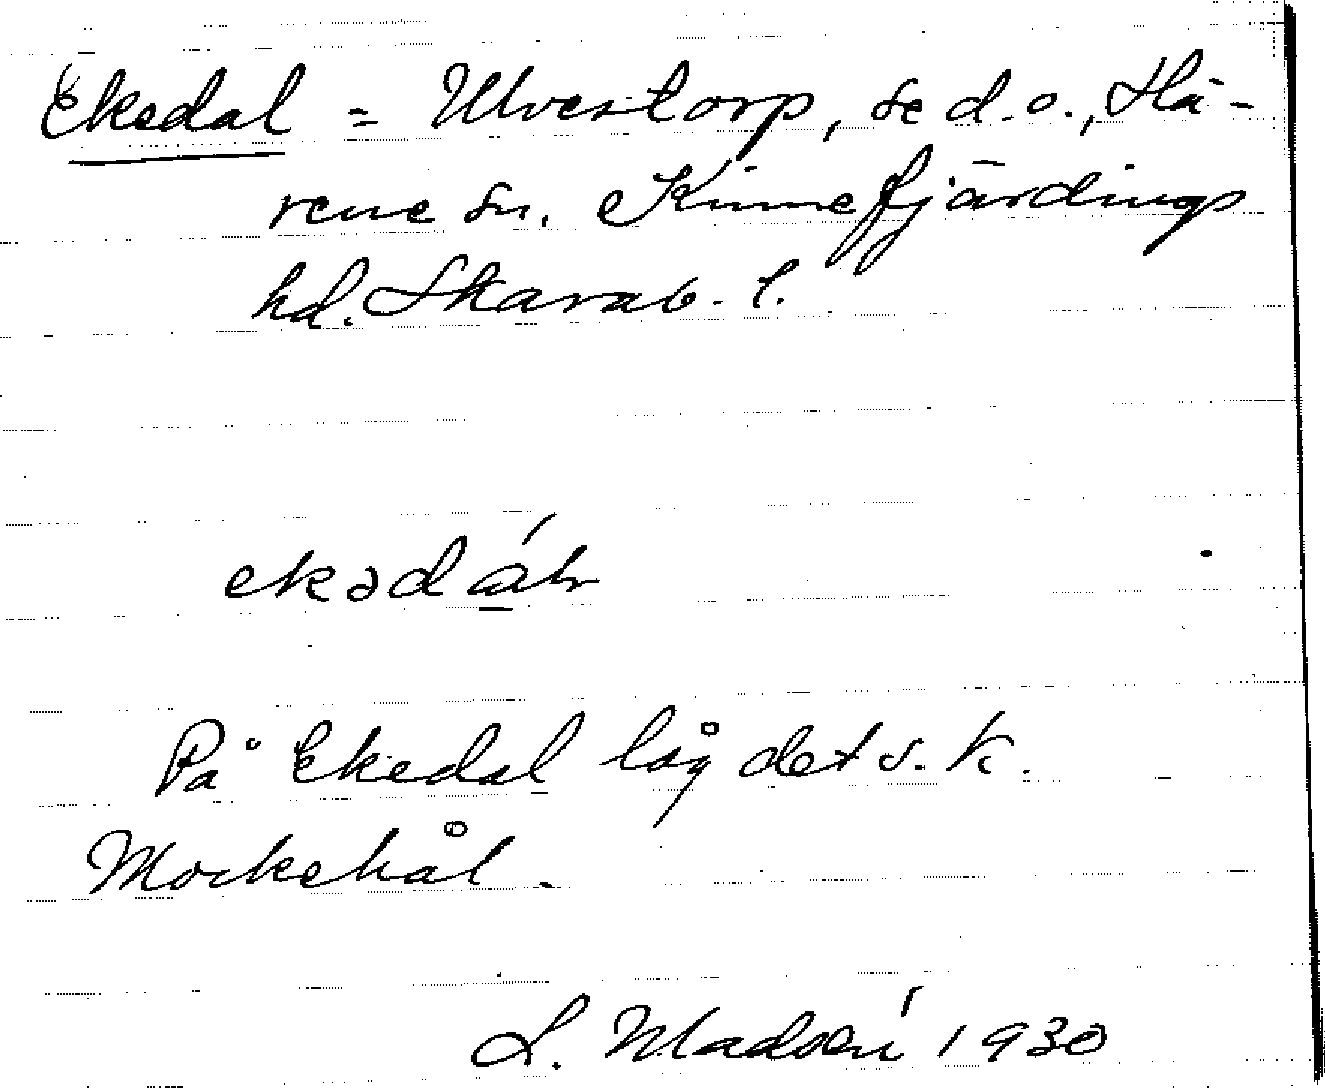 Ekedal = Ulvestorp, se d.o., Hä-
rene sn. Kinnefjärdings
hd. Skarab. l.
ekədáɫ
På Ekedal låg det s.k.
Mockehål.
S. Madsén 1930